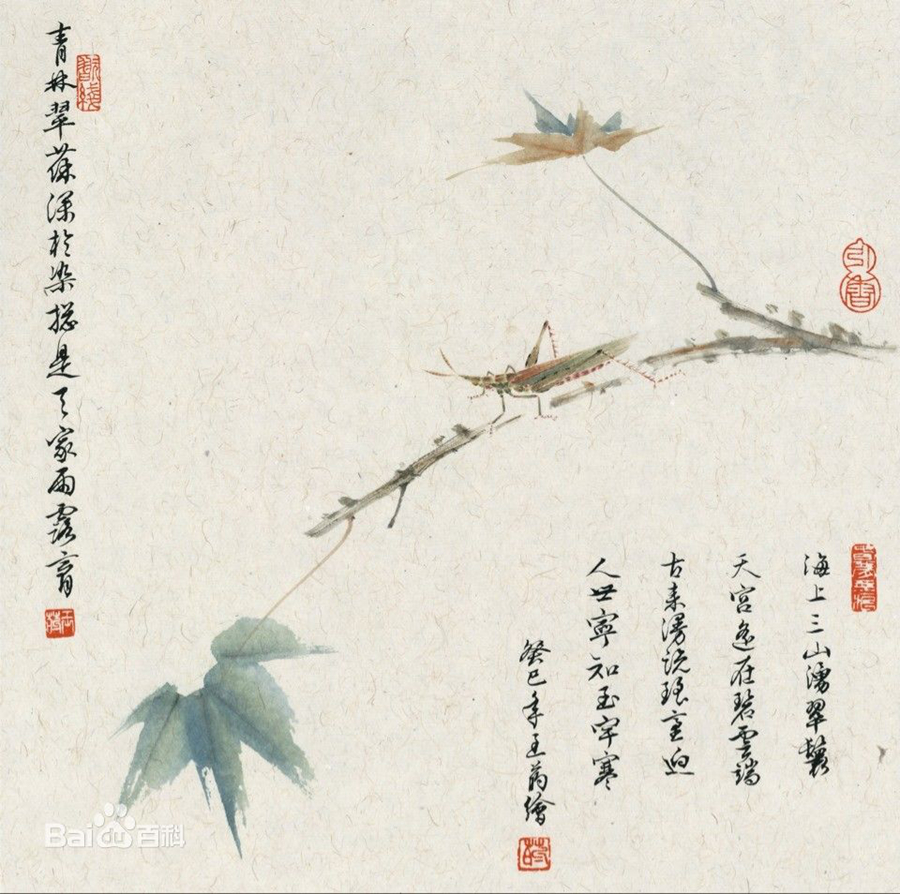 海上三山湧翠鬟
天宮遙在碧雲端
古來漫說瑤臺迥
人世寧知玉宇寒
癸巳年王繪
青林翠葆深於染總是天家雨露
Bai 百科